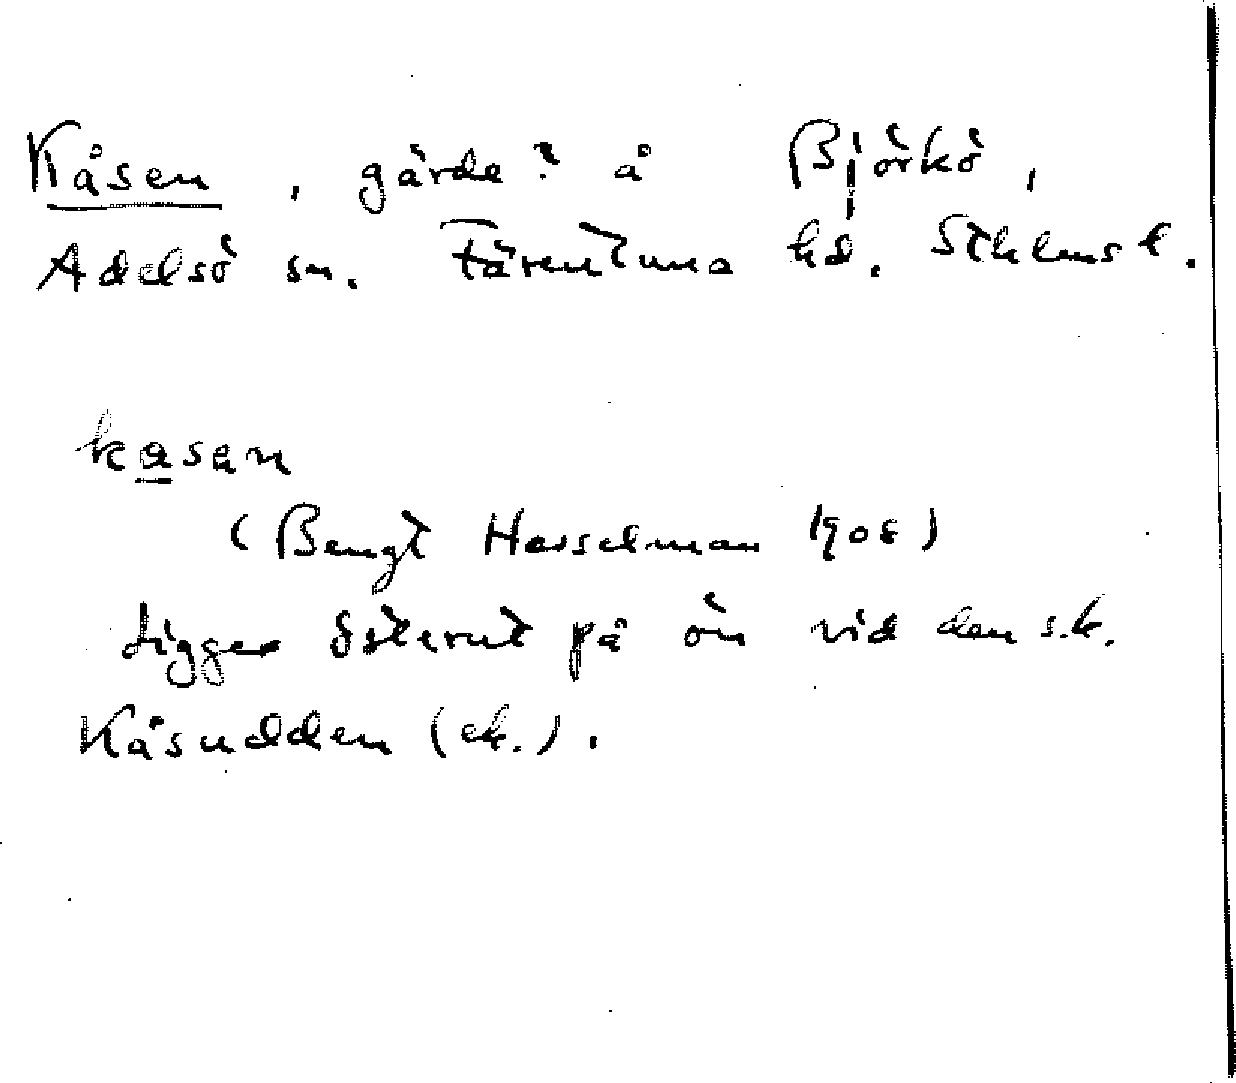 Kåsen, gärde? å Björkö,
Adelsö sn. Färentuna hd. Sthlms l.
kasen
(Bengt Hesselman 1908)
Ligger österut på ön vid den s.k.
Kåsudden (ek.).